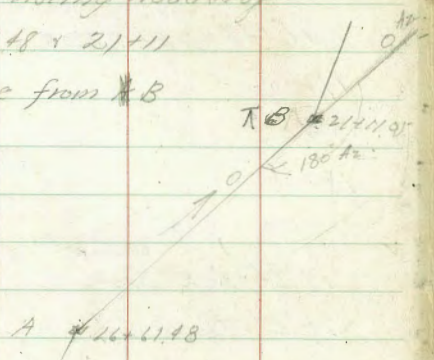 48 & 21+11
e from B
Az
0
π B 21+11.95
180° Az
0
A 26+61.48